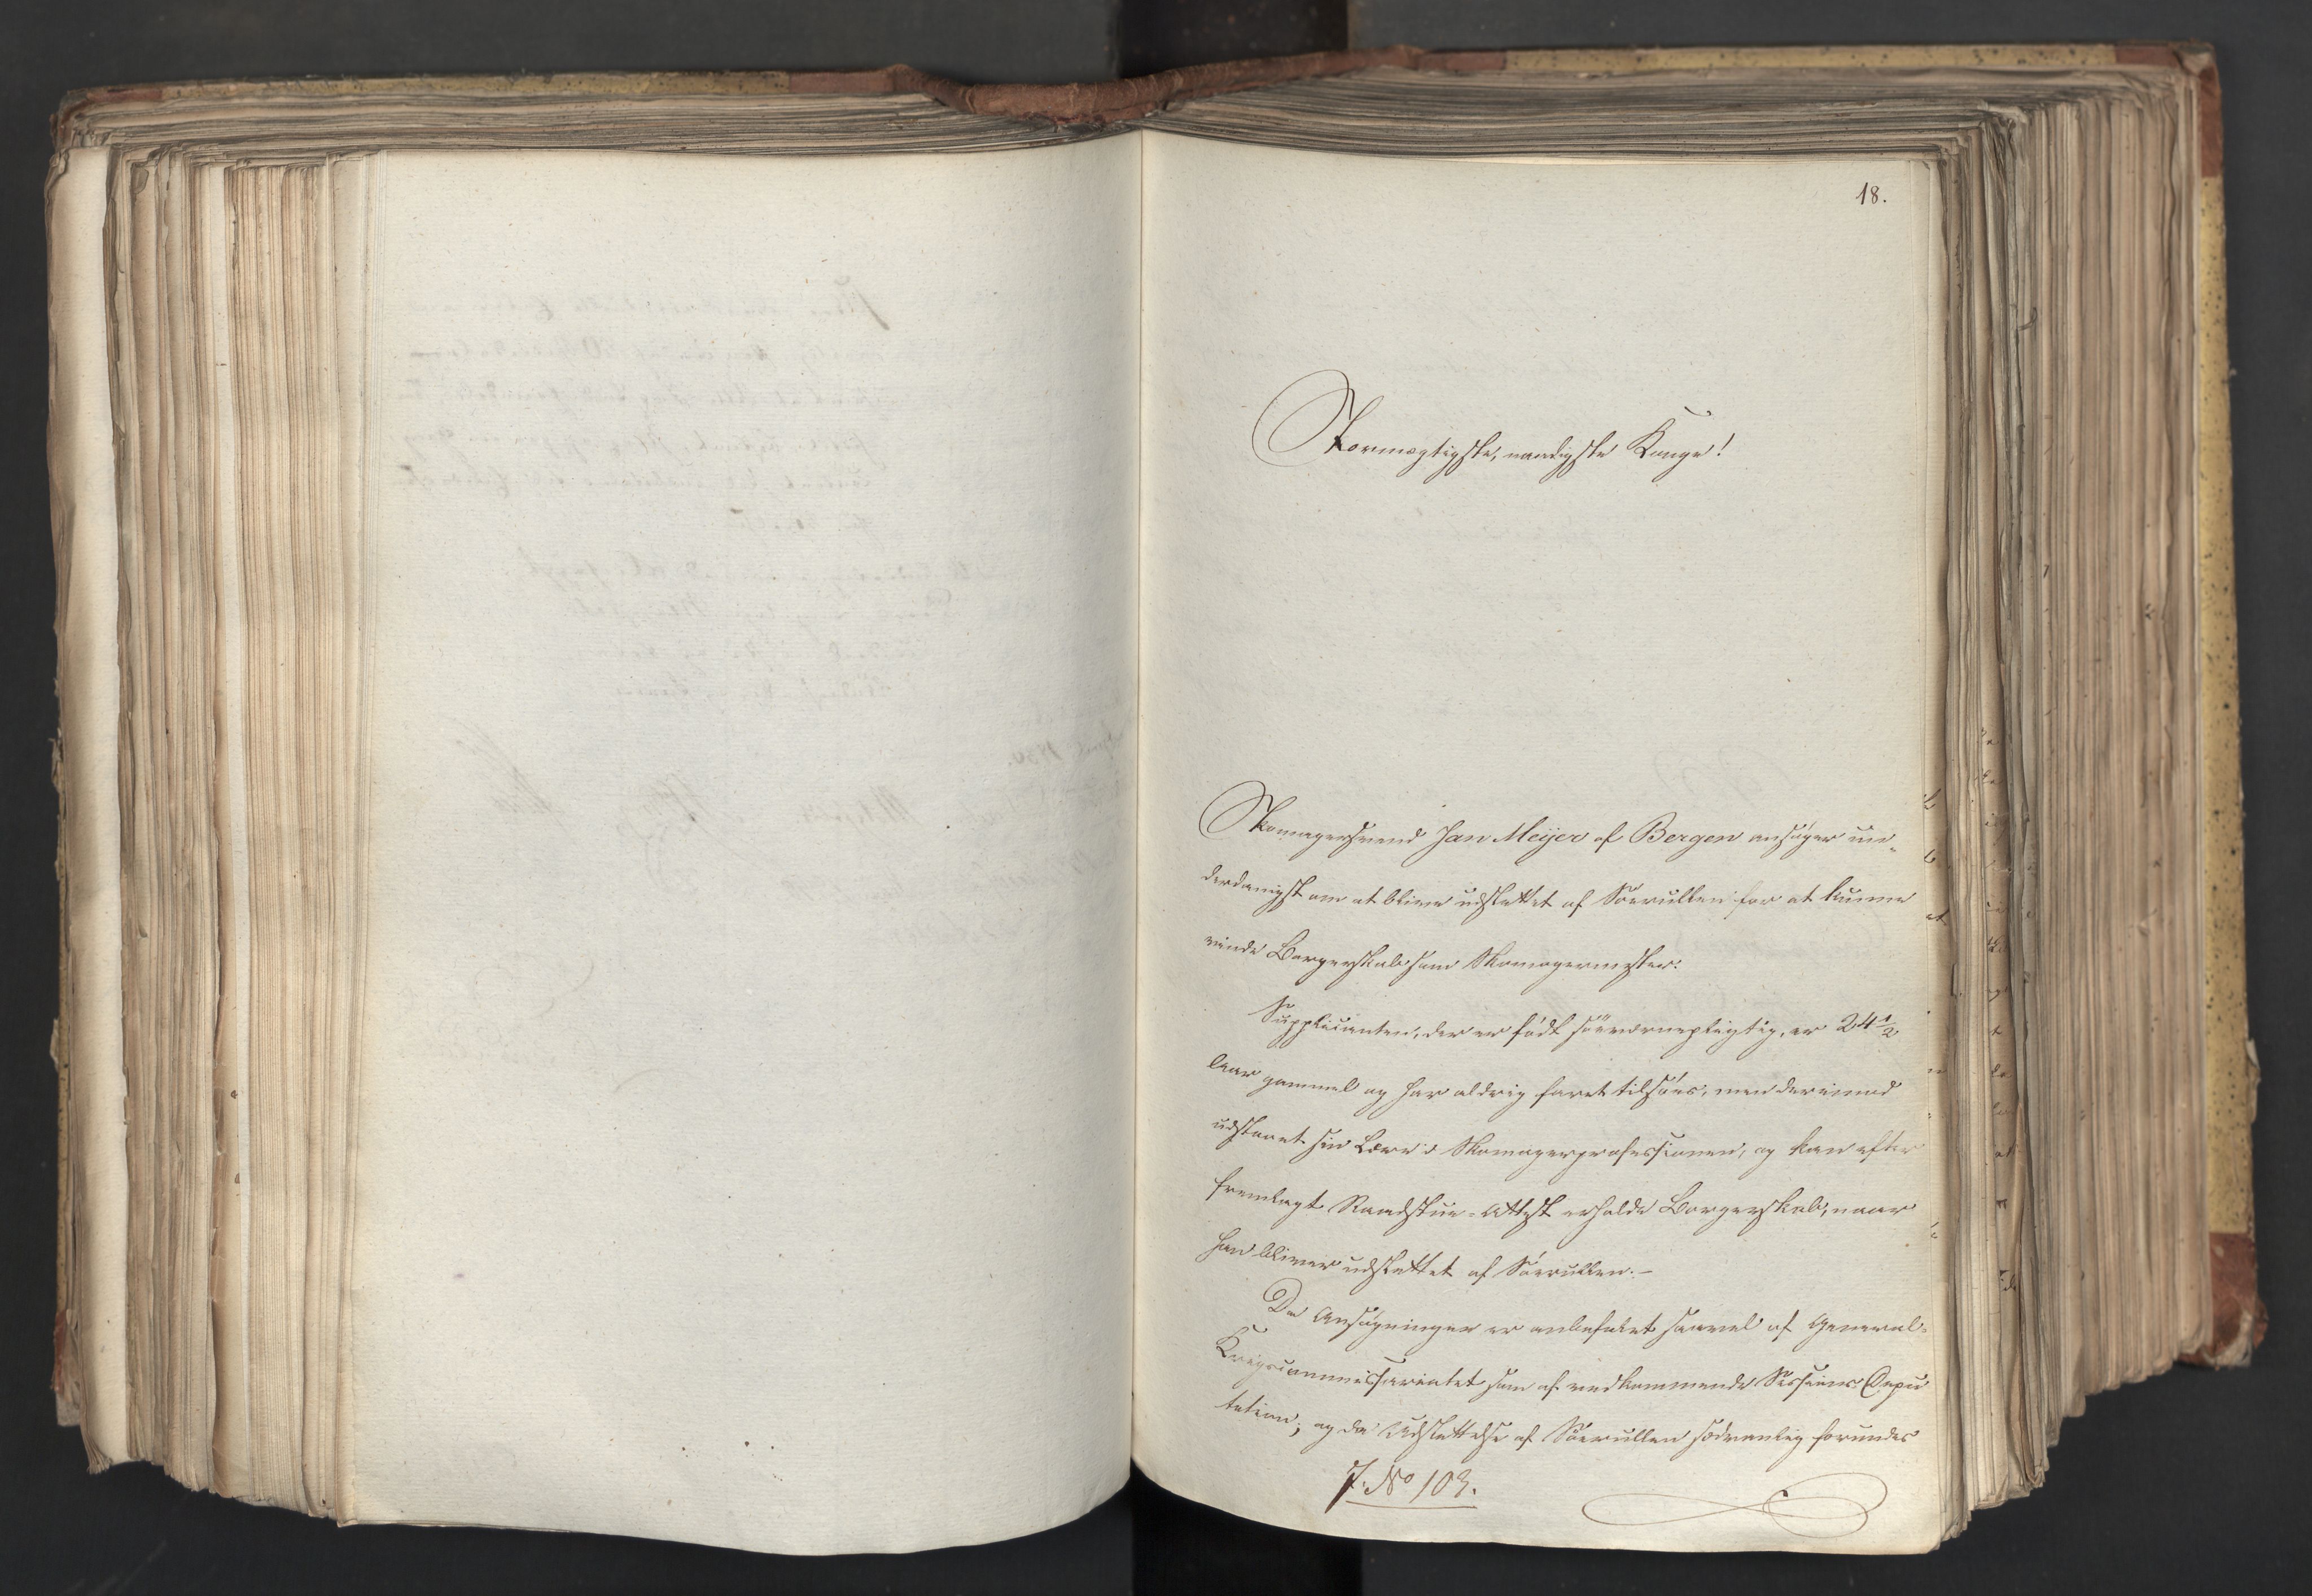 18.
Stormægtigste, naadigste Konge!
Skomagersvend Jan Meÿer af Bergen ansöger un-
derdanigst om at blive udslettet af Söerullen for at kunne
vinde Borgerskab som Skomagermester.
Supplicanten, der er födt söeværnepligtig, er 24 1/2
Aar gammel og har aldrig faret tilsöes, men derimod
udstaaet sin Lære i Skomagerprofessionen, og kan efter
fremlagt Raadstue-Attest erholde Borgerskab, naar
han bliver udslettet af Söerullen.-
Da Ansögningen er anbefalet saavel af General-
Krigscommissariatet som af vedkommende Sessions Depu
tation; og da Udslettelse af Söerullen sædvanlig forundes
J. No 103.